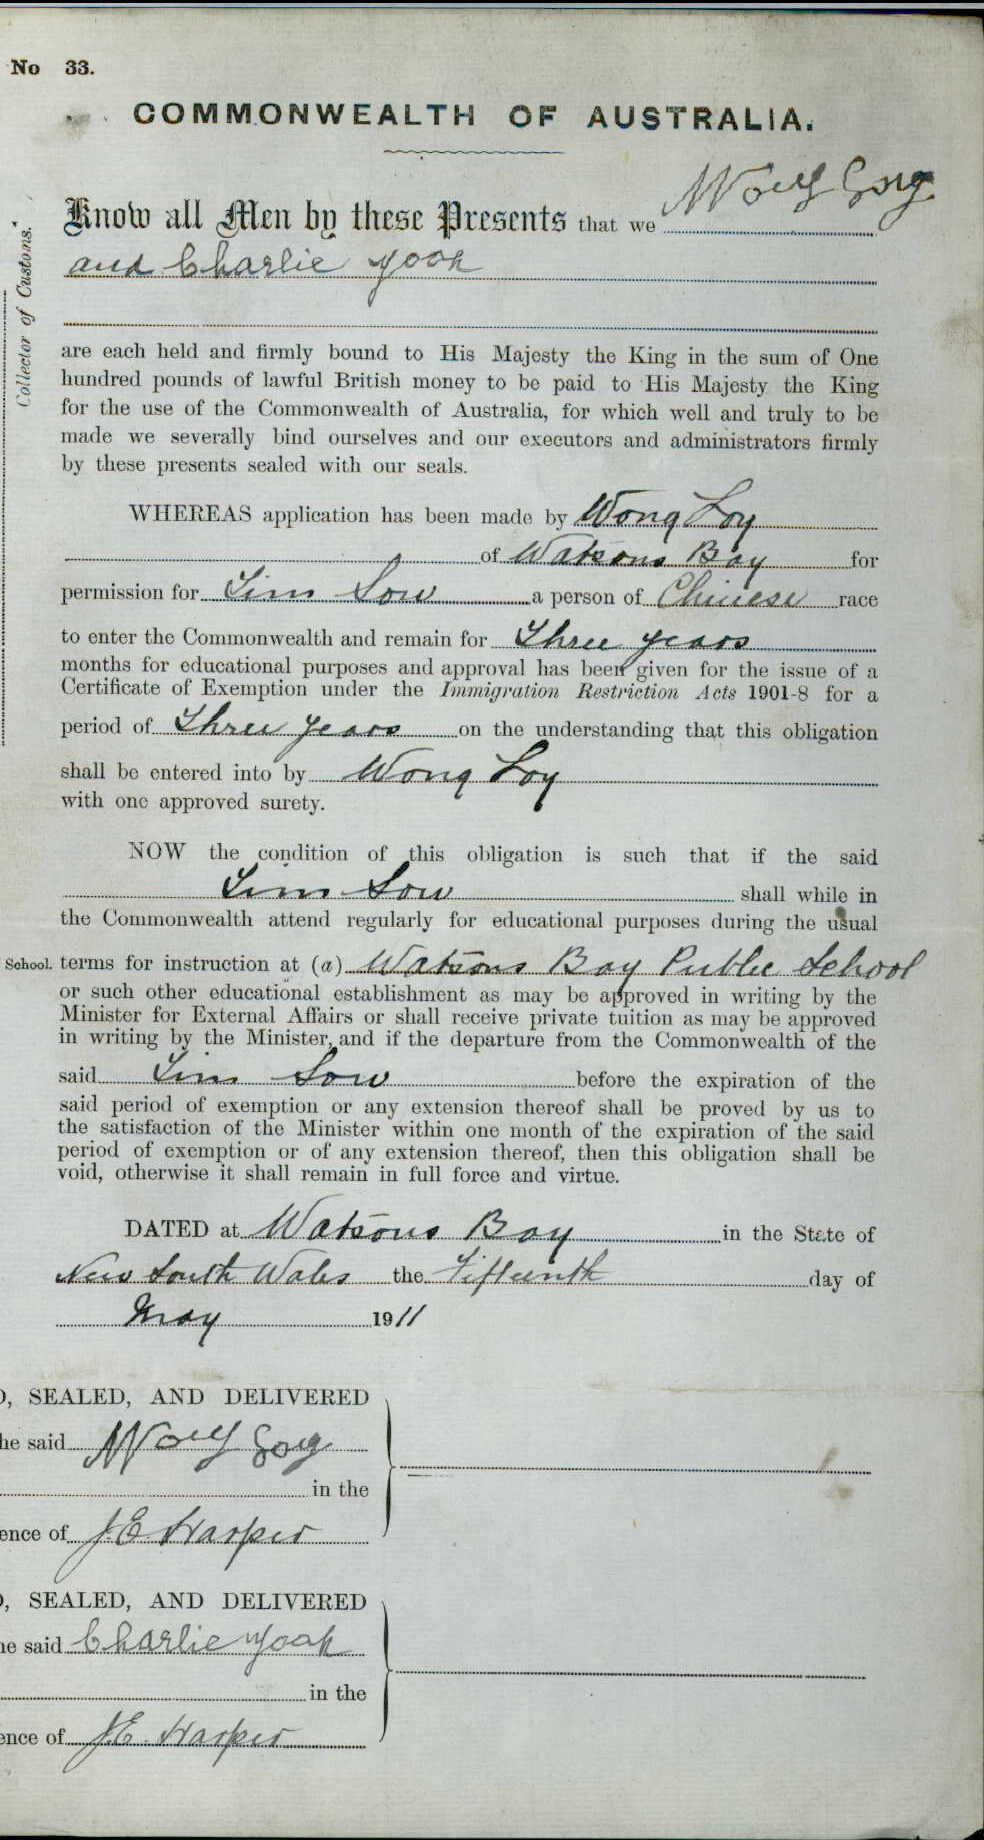 No 33.
COMMONWEALTH OF AUSTRALIA.
Know all Men by these Presents that we Wong Loy
and Charlie Yook
are each held and firmly bound to His Majesty the King in the sum of One
hundred pounds of lawful British money to be paid to His Majesty the King
for the use of the Commonwealth of Australia, for which well and truly to be
made we severally bind ourselves and our executors and administrators firmly
by these presents sealed with our seals.
WHEREAS application has been made by Wong Loy
of Watsons Bay for
permission for Lim Sow a person of Chinese race
to enter the Commonwealth and remain for Three years
months for educational purposes and approval has been given for the issue of a
Certificate of Exemption under the Immigration Restriction Acts 1901-8 for a
period of Three years on the understanding that this obligation
shall be entered into by Wong Loy
with one approved surety.
NOW the condition of this obligation is such that if the said
Lim Sow shall while in
the Commonwealth attend regularly for educational purposes during the usual
School. terms for instruction at (a) Watsons Bay Public School
or such other educational establishment as may be approved in writing by the
Minister for External Affairs or shall receive private tuition as may be approved
in writing by the Minister, and if the departure from the Commonwealth of the
said Lim Sow before the expiration of the
said period of exemption or any extension thereof shall be proved by us to
the satisfaction of the Minister within one month of the expiration of the said
period of exemption or of any extension thereof, then this obligation shall be
void, otherwise it shall remain in full force and virtue.
DATED at Watsons Bay in the State of
New South Wales the Fifteenth day of
May 1911
D, SEALED, AND DELIVERED
he said Wong Loy
in the
ence of J.E. Harper
D, SEALED, AND DELIVERED
he said Charlie Yook
in the
ence of J.E. Harper
Collector of Customs.